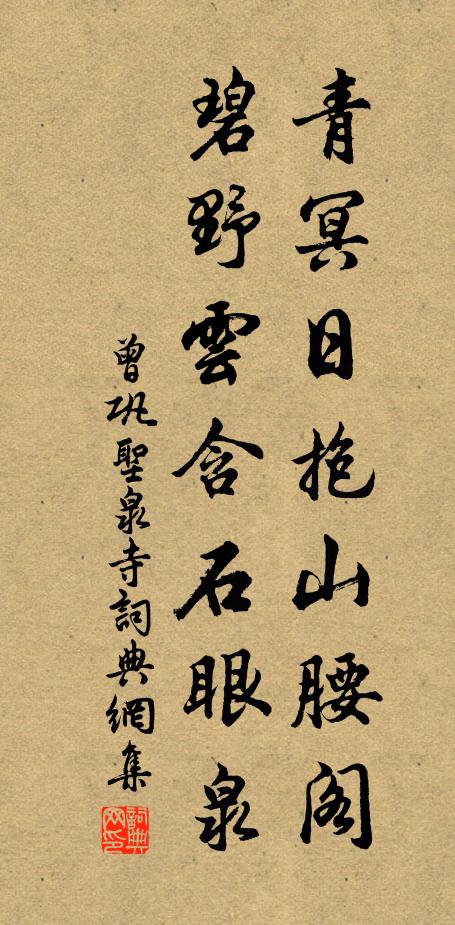 青冥日抱山腰阁
碧野雲含石眼泉
曾巩聖泉寺詞典網集
詞典网印